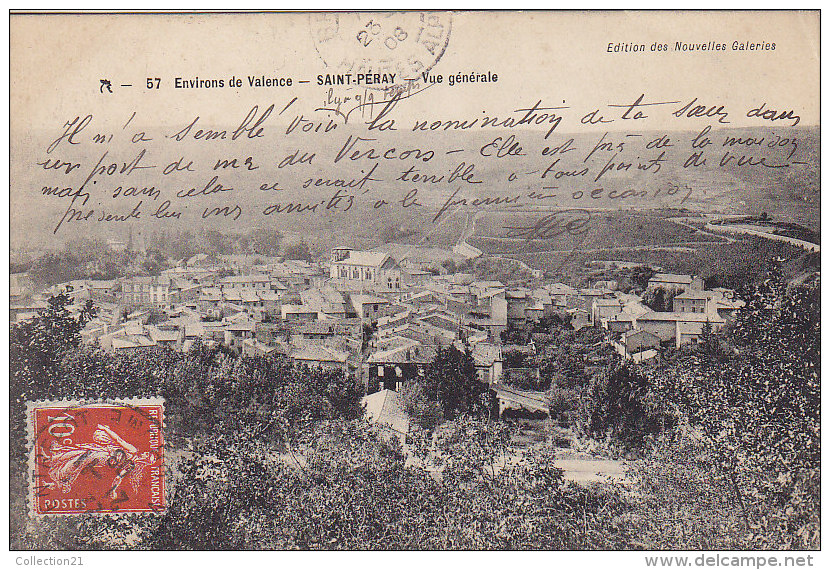 Edition des Nouvelles Galeries
23
08
57 Environs de Valence — SAINT-PÉRAY — Vue générale
Il m'a semblé voir la nomination de ta Sœur dans
un port de mer du Vercors — Elle est près de la maison
mais sans cela ce serait terrible à tous points de vue
présente leur mes amitiés à la première occasion
10
POSTES
Collection21
www.delcampe.net